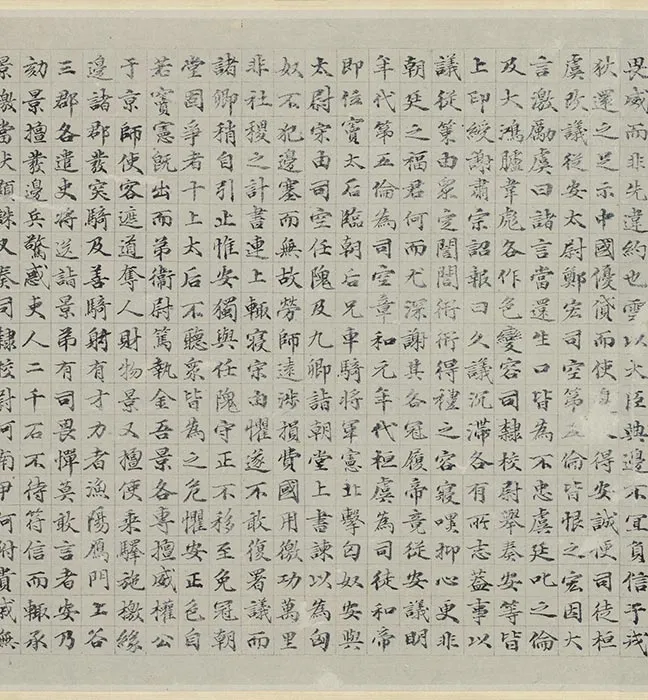 畏威而非先違約也雲以大臣典邊不宜負信于戎
狄還之足示中國優貸而使人得安誠便司徒桓
虞改議從安太尉鄭宏司空第五倫皆恨之宏因大
言激勵虞曰諸言當還生口皆為不忠虞廷叱之倫
及大鴻臚韋彪各作色變容司隸校尉舉奏安等皆
上印綬謝肅宗詔報曰久議沉滯各有所志蓋事以
議從策由眾定誾誾衎衎得禮之容寢嘿抑心更非
朝廷之福君何而尤深謝其各冠履帝竟從安議明
年代第五倫為司空章和元年代桓虞為司徒和帝
即位竇太后臨朝后兄車騎將軍憲北擊匈奴安與
太尉宋由司空任隗及九卿詣朝堂上書諫以為匈
奴不犯邊塞而無故勞師遠涉損費國用徼功萬里
非社稷之計書連上輒寢宋由懼遂不敢復署議而
諸卿稍自引止惟安獨與任隗守正不移至免冠朝
堂固爭者十上太后不聽眾皆為之危懼安正色自
若竇憲既出而弟衛尉篤執金吾景各專擅威權公
于京師使客遮道奪人財物景又擅使乘驛施檄緣
邊諸郡發突騎及善騎射有才力者漁陽鴈門上谷
三郡各遣吏將送詣景第有司畏憚莫敢言者安乃
劾景擅發邊兵驚惑吏人二千石不待符信而輒承
景檄當伏顯誅又奏司隸校尉河南尹阿附貴戚無